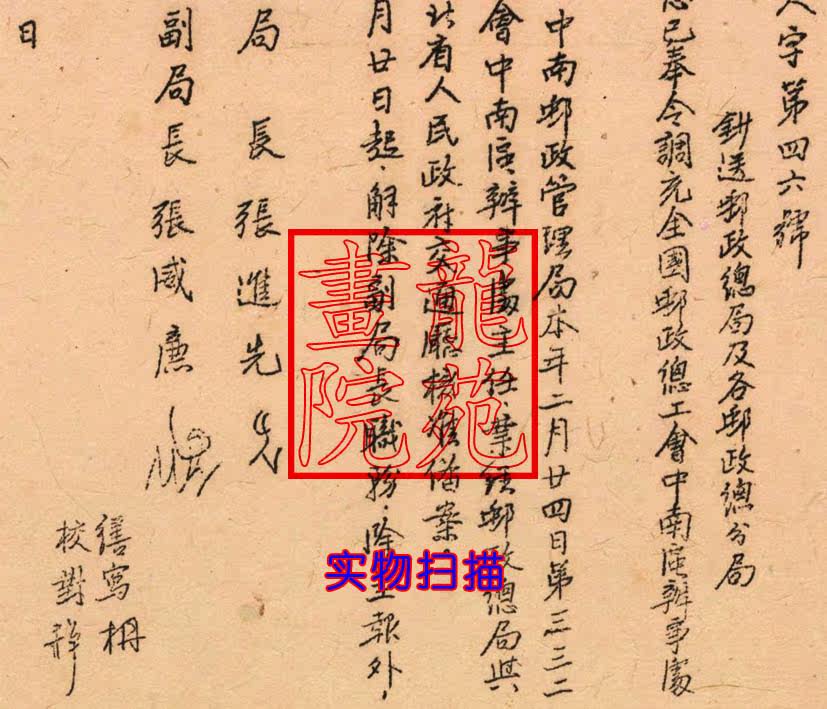 人字第四六號
鈔送郵政總局及各郵政總分局
已奉令調充全國郵政總工會中南區辦事處
中南郵政管理局本年二月廿四日第三三二
會中南區辦事處主任,業經郵政總局與
省人民政府交通廳核准備案
月廿日起,解除副局長職務,除呈報外,
局長張進先
副局長張威廉
日
繕寫
校對
龍苑
畫院
实物扫描